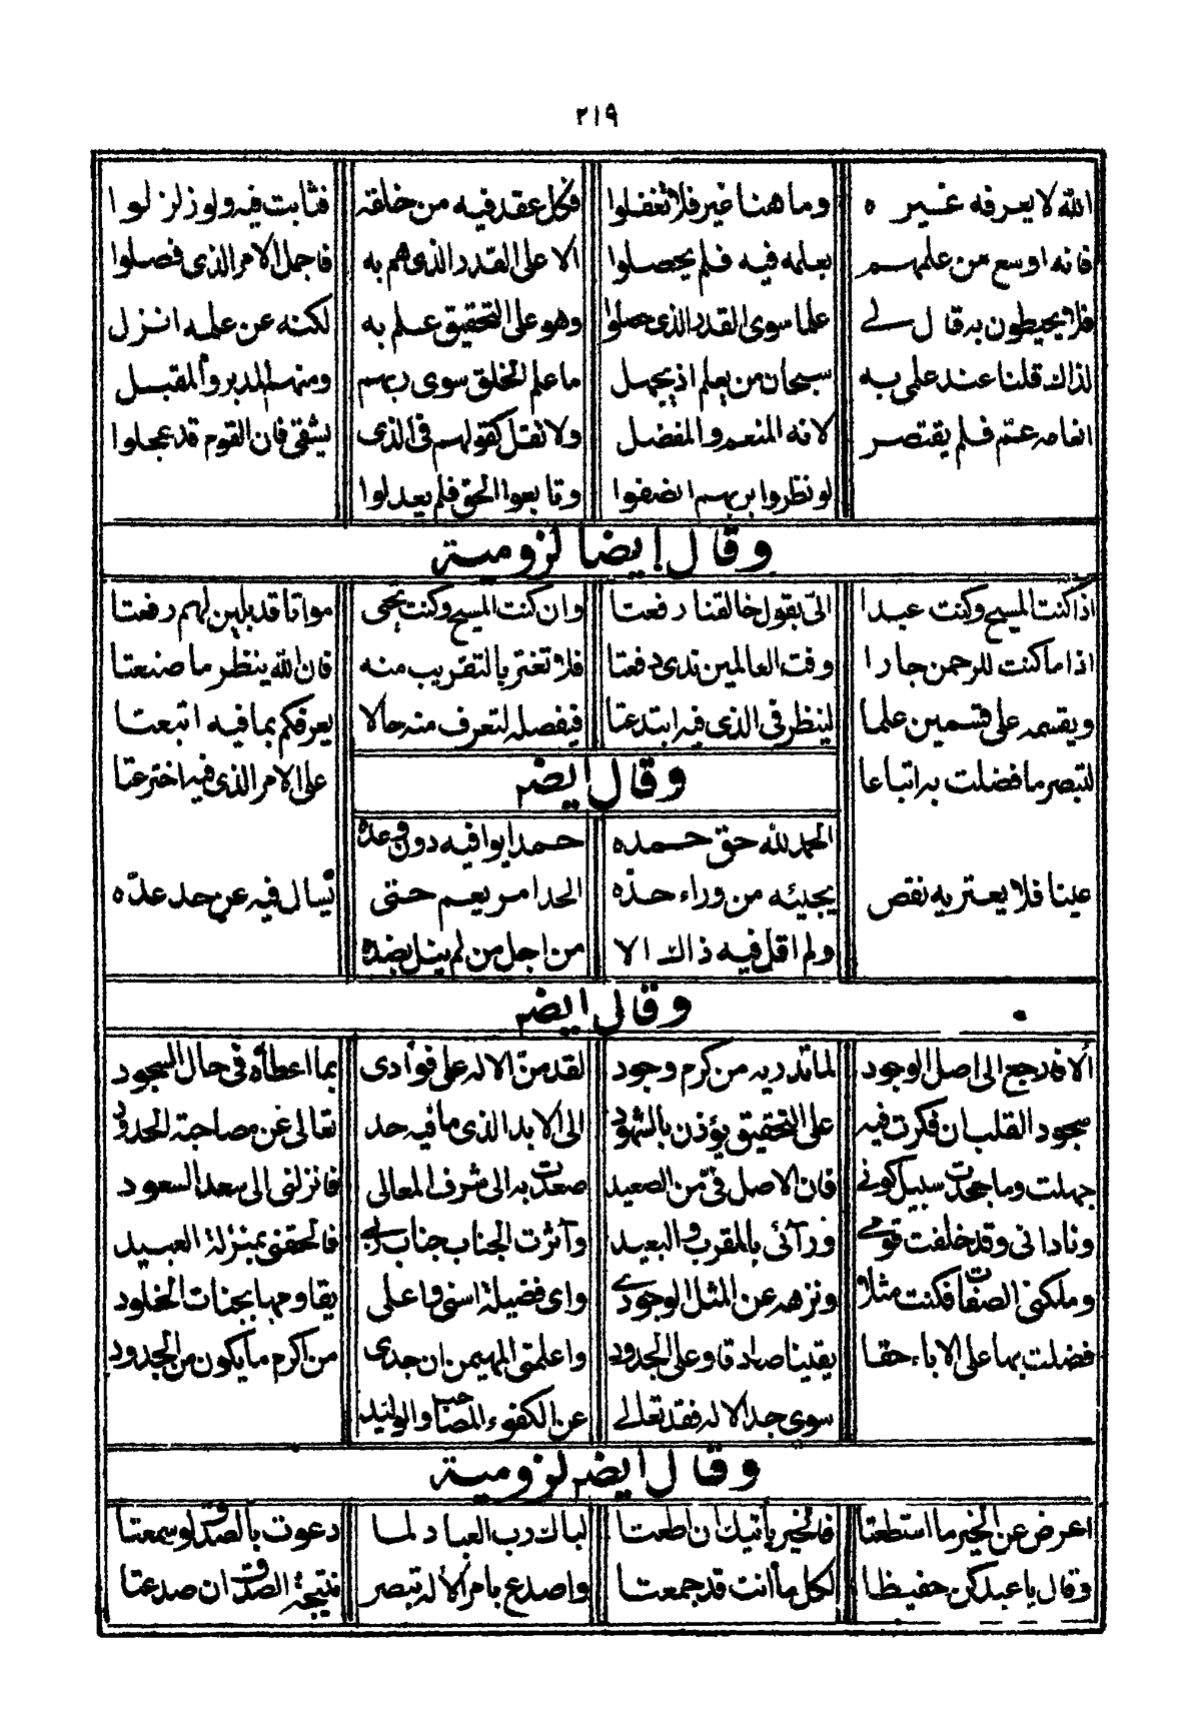 ٢١٩
الله لا يعرفه غيره وما هنا غير فلا تغفلوا فكل عقد فيه من خلقه فثابت فيه ولو زلزلوا
فانه اوسع من علمهم بعلمه فيه فلم يحصلوا الا على القدر الذى هم به فاجمل الامر الذى فصلوا
فلا يحيطون به قال لى علما سوى القدر الذى حصلوا وهو على التحقيق علم به لكنه عن علمه انزل
لذاك قلنا عند علمى به سبحان من يعلم اذ يجهل ما علم الخلق سوى ربهم ومنهم المدبر والمقبل
انعامه عم فلم يقتصر لانه المنعم والمفضل ولا تقل كقولهم فى الذى يشقى فان القوم قد عجلوا
لو نظروا بربهم انصفوا وتابعوا الحق فلم يعدلوا
وقال ايضا لزومية
اذا كنت المسيح وكنت عبدا الى بقول خالقنا رفعتا وان كنت المسيح وكنت تحيى مواتا قد بلين لهم رفعتا
اذا ما كنت للرحمن جارا وفت العالمين ندى دفعتا فلا تغتر بالتقريب منه فان الله ينظر ما صنعتا
ويقسمه على قسمين علما لينظر فى الذى فيه ابتدعتا فيفصله لتعرف منه حالا يعرفكم بما فيه اتبعتا
لتبصر ما فضلت به اتباعا على الامر الذى فيه اخترعتا
وقال ايضه
الحمد لله حق حمده حمدا يوافيه دون وعده
عينا فلا يعتريه نقص يجيئه من وراء حده الحد امر يعم حتى تسال فيه عن حد عده
ولم اقل فيه ذاك الا من اجل من لم ينل بضده
وقال ايضه
ألا فارجع الى اصل الوجود لما تدريه من كرم وجود لقد من الاله على فوأدى بما اعطاه فى حال السجود
سجود القلب ان فكرت فيه على التحقيق يؤذن بالشهود الى الابد الذى ما فيه حد تعالى عن مصاحبة الحدود
جهلت وما جهدت سبيل كونى فان الاصل فى من الصعيد صعدت به الى شرف المعالى فانزلنى الى سعد السعود
ونادانى وقد خلفت قومى ورآنى بالمقرب والبعيد وآثرت الجناب جناب ربى فالحقنى بمنزلة العبيد
وملكنى الصفات فكنت مثلا ونزهه عن المثل الوجودى واى فضيلة اسنى واعلى يقاومها بجنات الخلود
فضلت بها على الاباء حقا يقينا صادقا وعلى الجدود واعلمنى المهيمن ان جدى من اكرم ما يكون من الجدود
سوى جد الاله فقد تعالى عن الكفوء المصاحب والوليد
وقال ايضه لزومية
اعرض عن الخير ما استطعتا فالخير يأتيك ان اطعتا لباك رب العباد لما دعوت بالصدق لو سمعتا
وقال يا عبد كن حفيظا لكل ما أنت قد جمعتا واصدع بامر الاله تبصر نتيجة الصدق ان صدعتا